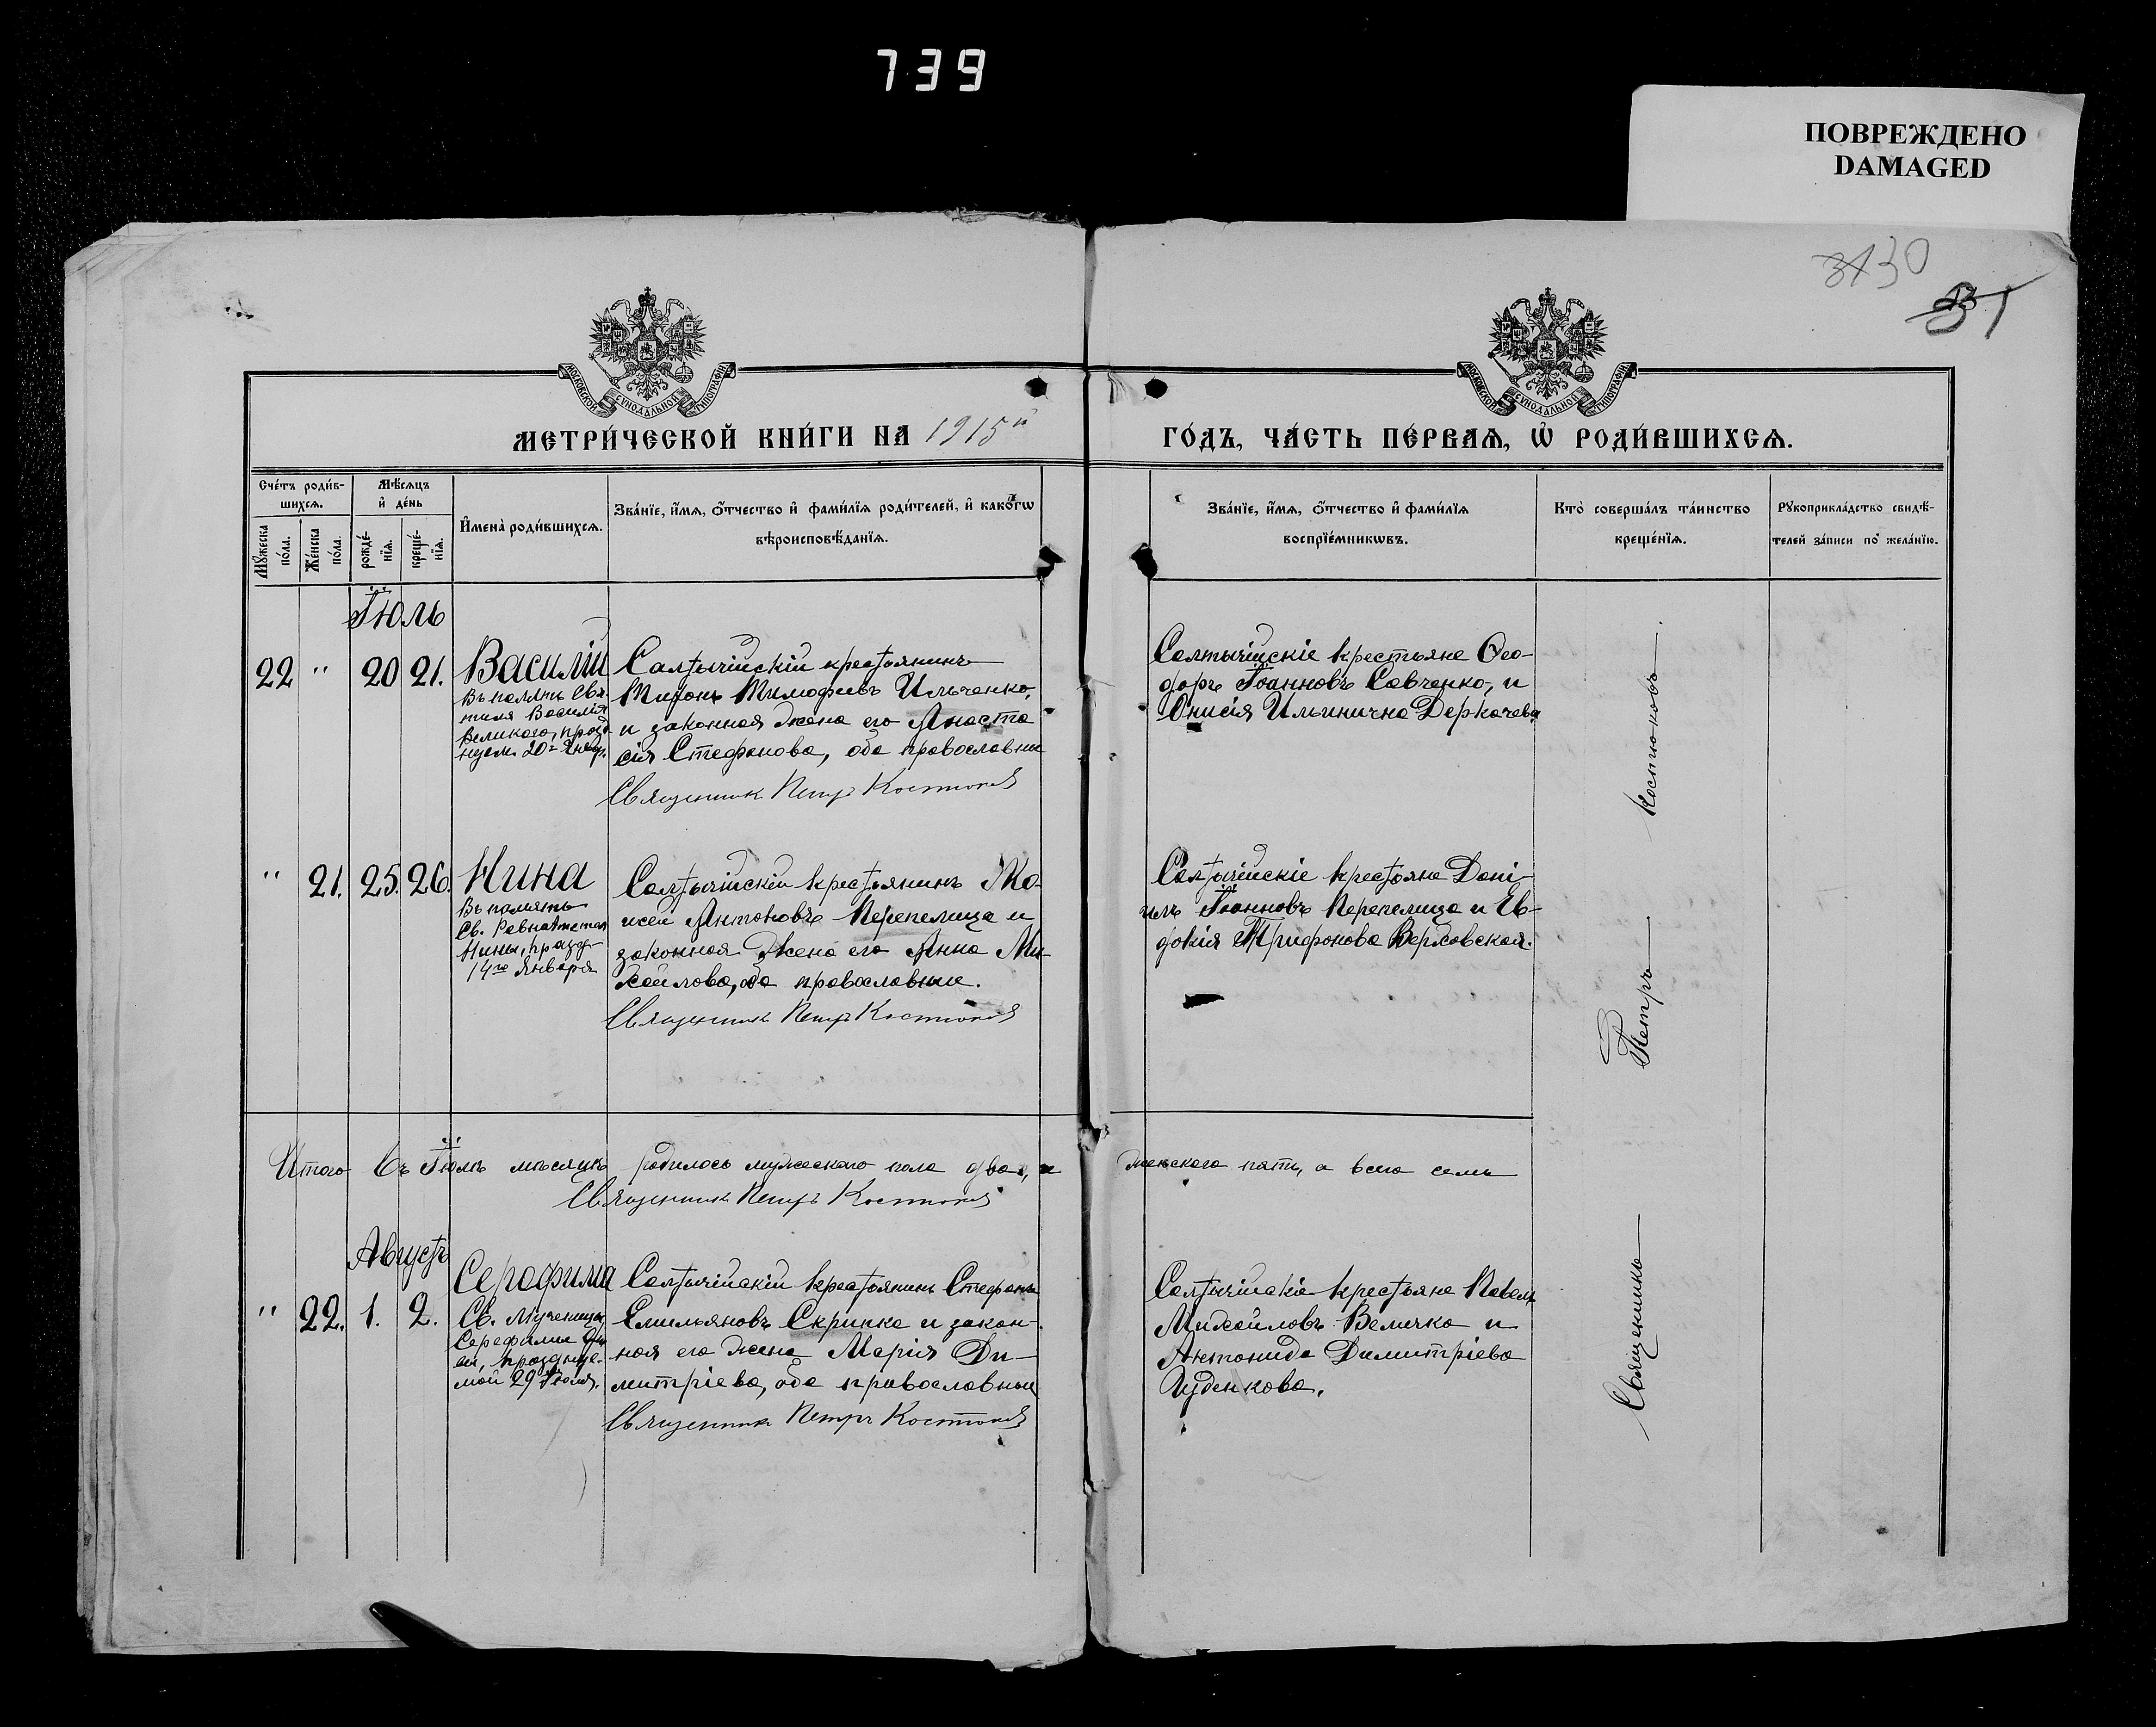 739
ПОВРЕЖДЕНО
DAMAGED
3130
31
МОСКОВСКОЙ СѴНОДАЛЬНОЙ ТИПОГРАФІИ
МОСКОВСКОЙ СѴНОДАЛЬНОЙ ТИПОГРАФІИ
МЕТРИ́ЧЕСКОЙ КНИ́ГИ НА 1915й
ГО́ДЪ, ЧА́СТЬ ПЕ́РВАѦ, Ѡ҆ РОДИ́ВШИХСѦ.
Сче́тъ роди́в-
шихсѧ.
Мꙋ́жеска
по́ла.
Же́нска
по́ла.
Мѣ́сѧцъ
и҆ де́нь
рожде́-
нїѧ.
креще́-
нїѧ.
И҆мена̀ роди́вшихсѧ.
Зва́нїе, и҆́мѧ, ѻ҆́тчество и҆ фами́лїѧ роди́телей, и҆ како́гѡ
вѣроисповѣ́данїѧ.
Зва́нїе, и҆́мѧ, ѻ҆́тчество и҆ фами́лїѧ
воспрїе́мникѡвъ.
Кто̀ соверша́лъ та́инство
креще́нїѧ.
Рꙋкоприкла́дство свидѣ́-
телей за́писи по жела́нїю.
Іюль
22 " 20 21.
Василій
Въ память Свя-
тителя Василія
Великаго, празд
нуем. 1го Янвр.
Салтычійскій крестьянинъ
Тихонъ Тимофеевъ Ильченко,
и законная жена его Анаста
сія Стефанова, оба православны
Священник Петръ Костюковъ
Салтычійскіе крестьяне Ѳео-
доръ Іоанновъ Савченко, и
Онисія Ильинична Деркачева
" 21. 25. 26.
Нина
Въ память
Св. Равноапостол
Нины, празд-
14го Января
Салтычійскій крестьянинъ Мо-
исей Антоновъ Перепелица и
законная жена его Анна Ми-
хайлова, оба православные.
Священник Петръ Костюковъ
Салтычійскіе крестьяне Дані-
илъ Іоанновъ Перепелица и Ев-
докія Трифонова Верховская.
Итого въ Іюлѣ мѣсяцѣ родилось мужескаго пола два, и женскаго пять, а всего семь
Священник Петръ Костюковъ
Августъ
" 22. 1. 2.
Серафима
Св. Мученицы
Серафимы
празднуе-
мой 29 Іюля.
Салтычійскій крестьянинъ Стефанъ
Емильяновъ Скрипка и закон-
ная его жена Марія Ди-
митріева, оба православные
Священник Петръ Костюковъ
Салтычійскіе крестьяне Павелъ
Михайловъ Величко и
Антонида Димитріева
Гуденкова.
Священникъ Петръ Костюковъ.